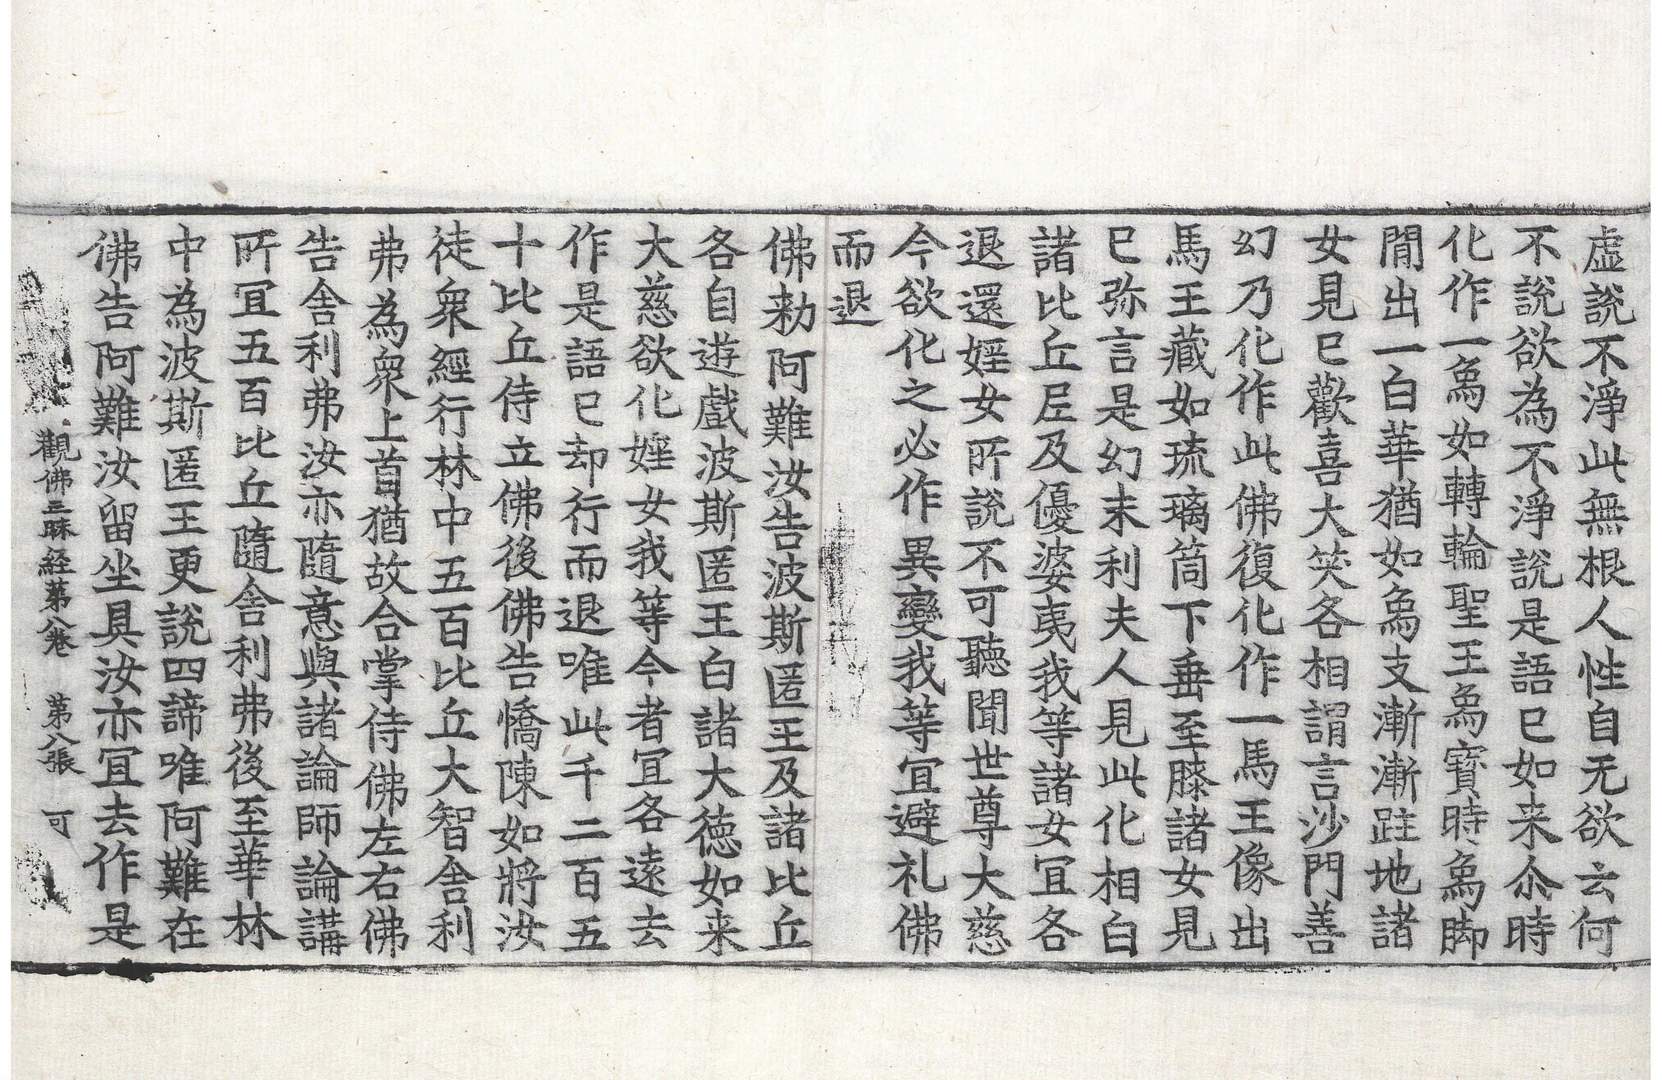 虛說不淨此無根人性自无欲云何
不說欲為不淨說是語已如来尒時
化作一𤉢如轉輪聖王𤉢寶時𤉢脚
閒出一白華猶如𤉢支漸漸跓地諸
女見已歡喜大笑各相謂言沙門善
幻乃化作此佛復化作一馬王像出
馬王藏如琉璃筒下垂至膝諸女見
已弥言是幻末利夫人見此化相白
諸比丘尼及優婆夷我等諸女冝各
退還婬女所說不可聽聞世尊大慈
今欲化之必作異變我等冝避礼佛
而退
佛勑阿難汝告波斯匿王及諸比丘
各自遊戲波斯匿王白諸大德如来
大慈欲化婬女我等今者冝各遠去
作是語已却行而退唯此千二百五
十比丘侍立佛後佛告憍陳如將汝
徒衆經行林中五百比丘大智舍利
弗為衆上首猶故合掌侍佛左右佛
告舍利弗汝亦隨意與諸論師論講
所冝五百比丘隨舍利弗後至華林
中為波斯匿王更說四諦唯阿難在
佛告阿難汝留坐具汝亦冝去作是
觀佛三昧経苐八卷　苐八張　可